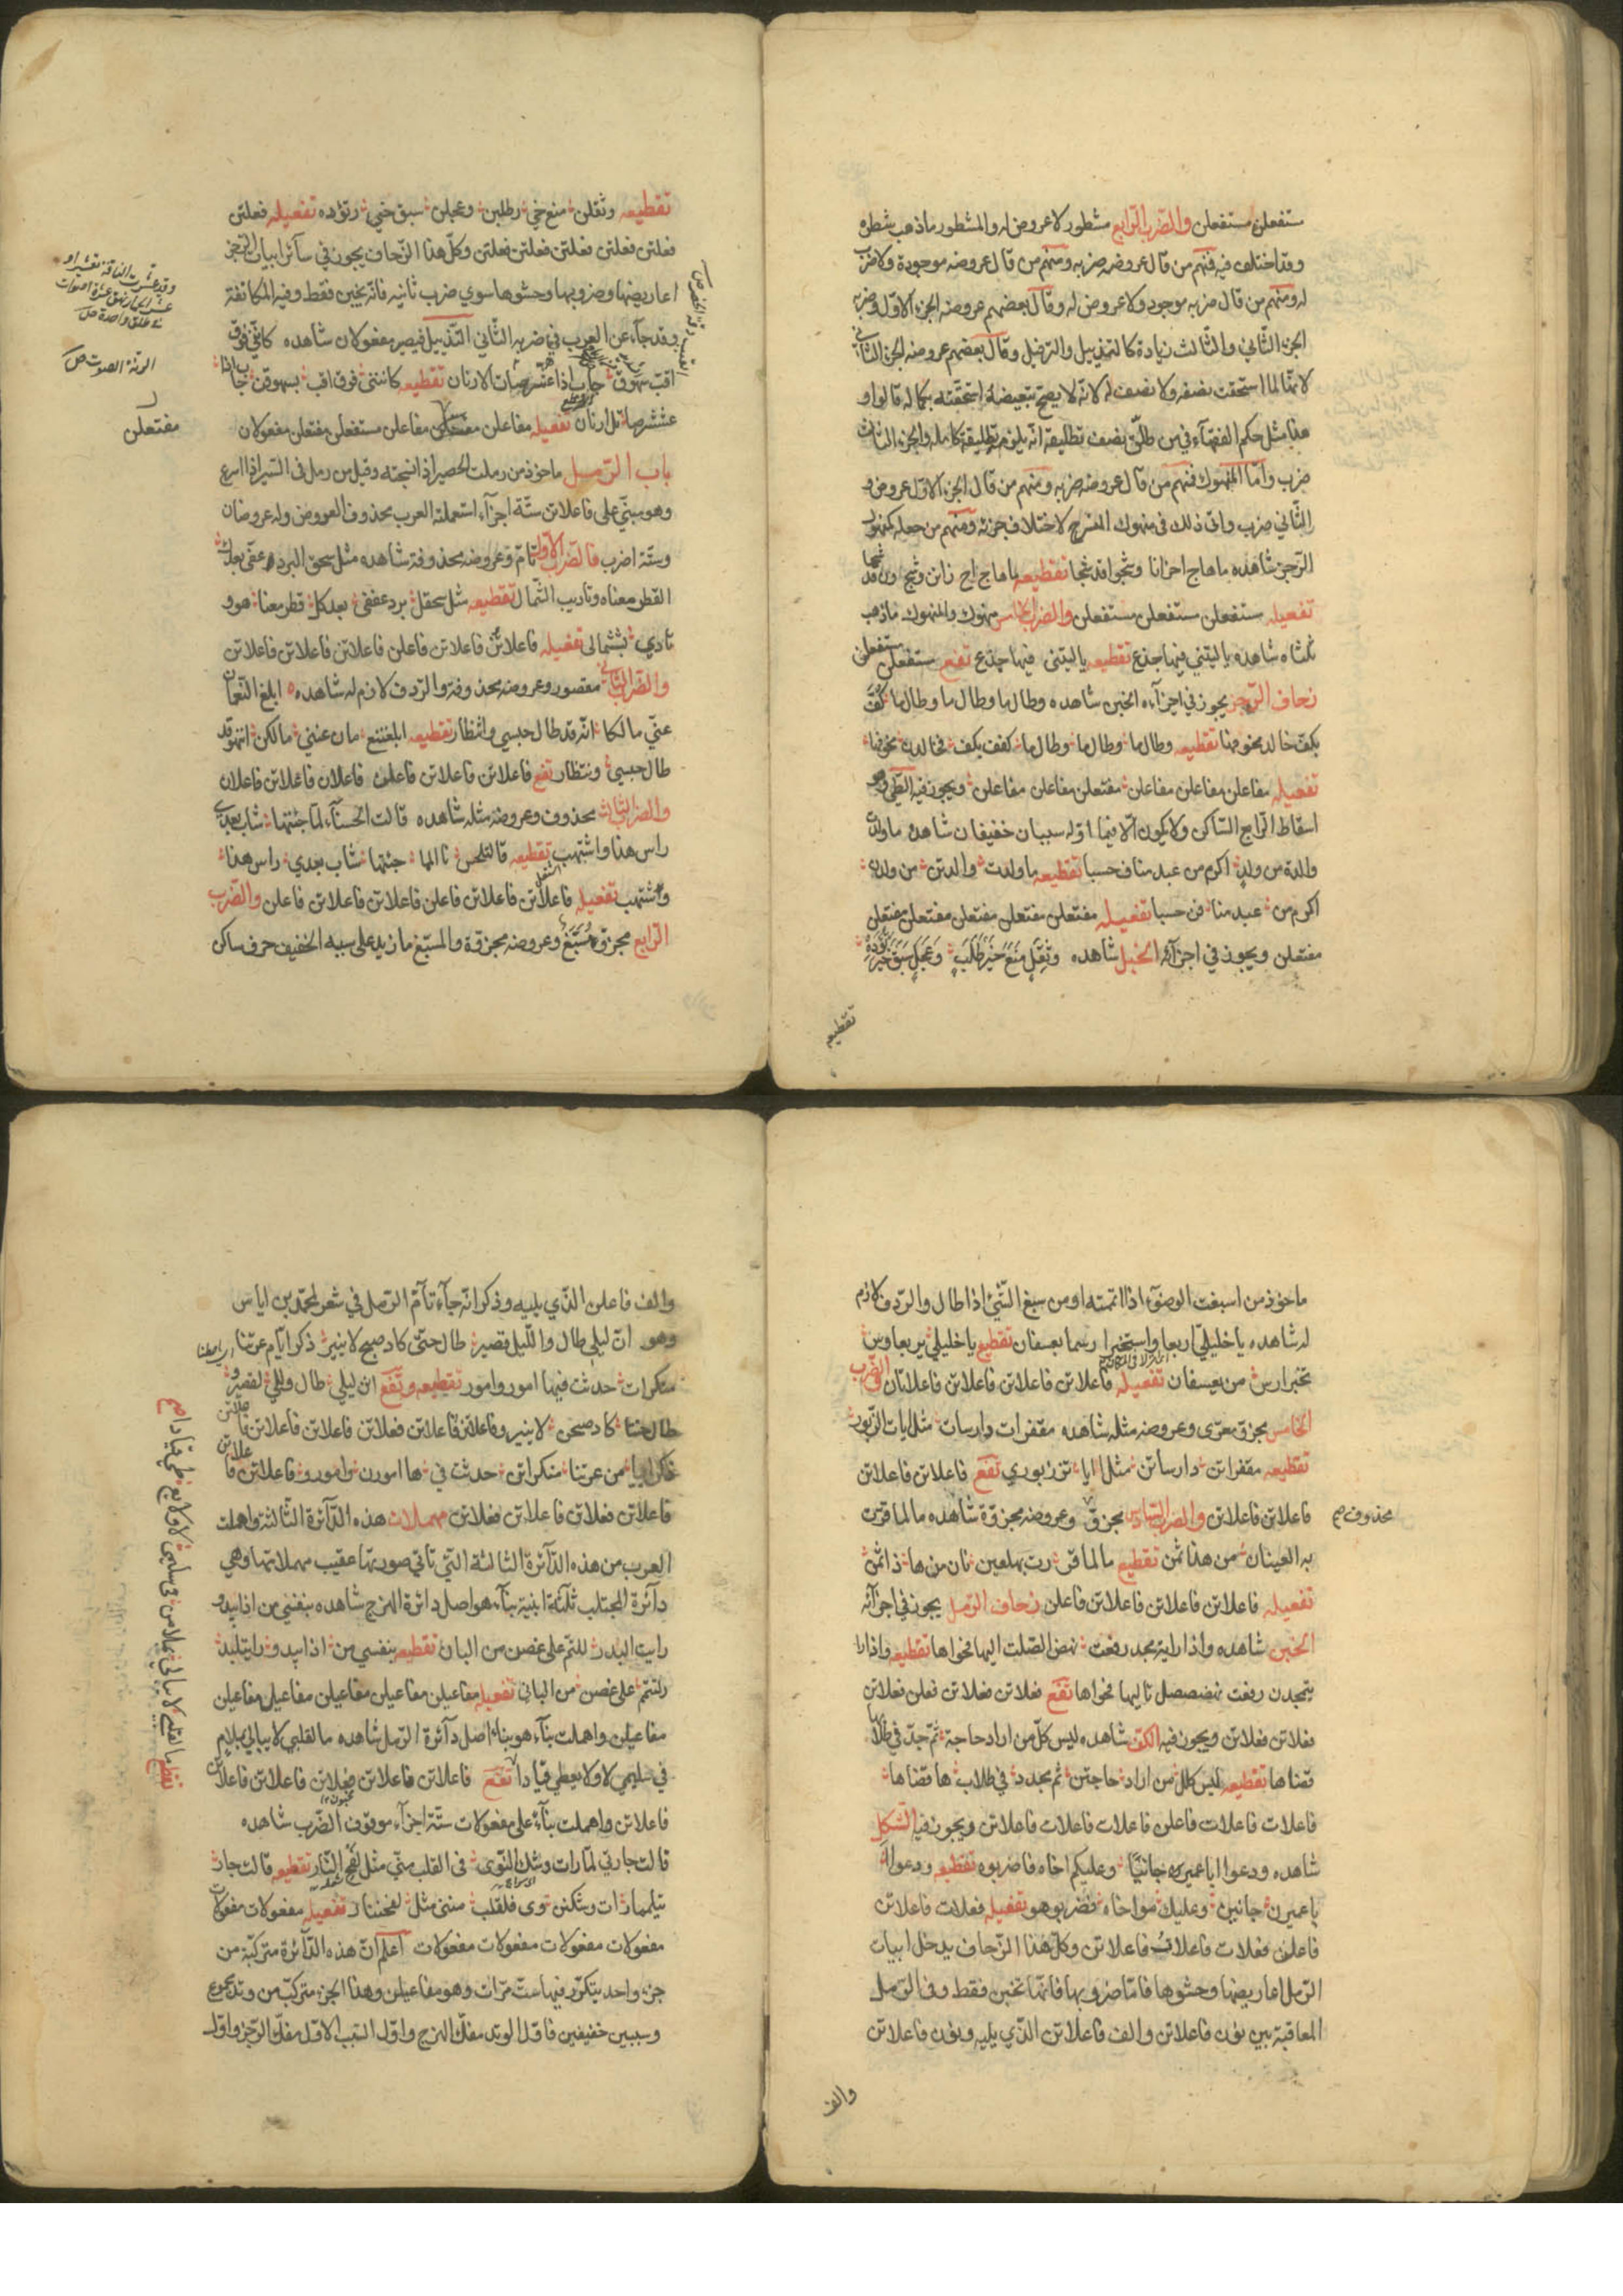 مستفعلن مستفعلن والضرب الرابع مشطور لا عروض له والمشطور ما ذهب شطره
وقد اختلف فيه فمنهم من قال عروضه ضربه ومنهم من قال عروضه موجودة ولا ضرب
له ومنهم من قال ضربه موجود ولا عروض له وقال بعضهم عروضه الجزء الاول وضربه
الجزء الثاني والثالث زيادة كالتذييل والترفيل وقال بعضهم عروضه الجزء الثاني
لانها لما استحقت نصفه ولا نصف له لانه لا يصح تبعيضه استحقته بكماله قالوا و
هذا مثل حكم الفقهاء في من طلق نصف تطليقة انه يلزم تطليقة كاملة والجزء الثالث
ضرب واما المنهوك فمنهم من قال عروضه ضربه ومنهم من قال الجزء الاول عروض و
الثاني ضرب واتى ذلك في منهوك المنسرح لاختلاف جزئه ومنهم من جعله كمنهوك
الرجز شاهده ما هاج احزانا وشجوا قد شجا تقطيعه ما هاج اح زانن وشج ون قد شجا
تفعيله مستفعلن مستفعلن مستفعلن والضرب الخامس منهوك والمنهوك ما ذهب
ثلثاه شاهده يا ليتني فيها جذع تقطيعه يا ليتني فيها جذع تفع مستفعلن مستفعلن
زحاف الرجز يجوز في اجزآءه الخبن شاهده وطال ما وطال ما وطال ما كفى
بكف خالد مخوفها تقطيعه وطال ما وطال ما وطال ما كفف بكف في خالدن مخوفها
تفعيله مفاعلن مفاعلن مفاعلن مفتعلن مفاعلن مفاعلن ويجوز فيه الطي وهو
اسقاط الرابع الساكن ولا يكون الا فيما اوله سببان خفيفان شاهده ما ولدت
والدة من ولد اكرم من عبد مناف حسبا تقطيعه ما ولدت والدتن من ولدن
اكرم من عبد منا فن حسبا تفعيله مفتعلن مفتعلن مفتعلن مفتعلن مفتعلن
مفتعلن ويجوز في اجزآئه الخبل شاهده وثقل منع خير طلب وعجل سبق خير تؤدة
تقطيعه
تقطيعه وثقلن منع خي رطلبن وعجلن سبق خي رتؤده تفعيله فعلتن
فعلتن فعلتن فعلتن فعلتن فعلتن وكل هذا الزحاف يجوز في سآئر ابيات الرجز
اعاريضها وضروبها وحشوها سوى ضرب ثانيه فانه يخبن فقط وفيه المكانفة
وقد جآء عن العرب في ضربه الثاني التذييل فيصير مفعولان شاهده كانني فوق
اقب سهوق جاب اذا عشر صات الارنان تقطيعه كانني فوق اقب بسهوقن جاب اذا
عششرصا تل رنان تفعيله مفاعلن مفاعلن مستفعلن مفتعلن مفعولان
مفتعلن
الرنة الصوت
باب الرمل ماخوذ من رملت الحصير اذا نسجته وقيل من رمل في السير اذا اسرع
وهو مبني على فاعلاتن ستة اجزآء استعملته العرب محذوف العروض وله عروضان
وستة اضرب فالضرب الاول تام وعروضه محذوفة شاهده مثل سحق البرد عفى بعدك
القطر معناه وتاديب الشمال تقطيعه مثل سحقل برد عففى بعدكل قطر معنا هوو
تاديبششمالى تفعيله فاعلاتن فاعلاتن فاعلن فاعلاتن فاعلاتن فاعلاتن
والضرب الثاني مقصور وعروضه محذوفة والردف لازم له شاهده ابلغ النعمان
عني مالكا انه قد طال حبسي وانتظار تقطيعه ابلغننع مان عنني مالكن اننهوقد
طال حبسي ونتظار تفع فاعلاتن فاعلاتن فاعلن فاعلاتن فاعلاتن فاعلان
والضرب الثالث محذوف وعروضه مثله شاهده قالت الخنساء لما جئتها شاب بعدي
راس هذا واشتهب تقطيعه قالتلخن سا لمما جئتها شاب بعدي راس هذا
وشتهب تفعيله فاعلاتن فاعلاتن فاعلن فاعلاتن فاعلاتن فاعلن والضرب
الرابع مجزو مسبغ وعروضه مجزوة والمسبغ ما زيد على سببه الخفيف حرف ساكن
ماخوذ من اسبغت الوضوء اذا اتممته او من سبغ الشئ اذا طال والردف لازم
له شاهده يا خليلي اربعا واستخبرا رسما بعسفان تقطيع يا خليلي يربعاوس
تخبرارس من بعسفان تفعيله فاعلاتن فاعلاتن فاعلاتن فاعلاتان والضرب
الخامس مجزو معرى وعروضه مثله شاهده مقفرات دارسات مثل ايات الزبور
تقطيعه مقفراتن دارساتن مثل ايا تززبوري تفع فاعلاتن فاعلاتن
فاعلاتن فاعلاتن والضرب السادس مجزو وعروضه مجزوة شاهده ما لما قرت
محذوف صح
به العينان من هذا ثمن تقطيع ما لما قر رت بهلعين نان من ها ذا ثمن
تفعيله فاعلاتن فاعلاتن فاعلاتن فاعلن زحاف الرمل يجوز في اجزآئه
الخبن شاهده واذا راية مجد رفعت نهض الصلت اليها فحواها تقطيعه واذا را
يتمجدن رفعت نهضصصل تاليها فحواها تفع فعلاتن فعلاتن فعلن فعلاتن
فعلاتن فعلاتن ويجوز فيه الكف شاهده ليس كل من اراد حاجة ثم جد في طلابها
قضاها تقطيعه ليس كلل من اراد حاجتن ثم جدد في طلاب ها قضاها
فاعلات فاعلات فاعلن فاعلات فاعلات فاعلاتن ويجوز فيه الشكل
شاهده ودعوا ابا عمير جانبا وعليكم اخاه فاضربوه تقطيعه ودعوا
باعميرن جانبن وعليك مواخاه فضربوهو تفعيله فعلات فاعلاتن
فاعلن فعلات فاعلات فاعلاتن وكل هذا الزحاف يدخل ابيات
الرمل اعاريضها وحشوها فاما ضروبها فانها تخبن فقط وفي الرمل
المعاقبة بين نون فاعلاتن والف فاعلاتن الذي يليه ونون فاعلاتن
والف
والف فاعلن الذي يليه وذكر انه جآء تآم الرمل في شعر لمحمد بن اياس
وهو ان ليلي طال والليل قصير طال حتى كاد صبح لا ينير ذكر ايام عرتنا
منكرات حدثت فيها امور وامور تقطيعه وتفع ان ليلي طال ولليل لقصيرو
طال حتا كاد صبحن لا ينيرو فاعلاتن فاعلاتن فعلاتن فاعلاتن فاعلاتن فاعلاتن
ذكر ايا من عرتنا منكراتن حدثت في ها امورن وامورو فاعلاتن فاعلاتن
فاعلاتن فعلاتن فاعلاتن فعلاتن مهملات هذه الدآئرة الثالثة واهملت
العرب من هذه الدآئرة الثالثة التي تاتي صورتها عقيب مهملاتها وهي
دآئرة المجتلب ثلثة ابنية بنآء هو اصل دائرة الهزج شاهده بنفسي من اذا يبدو
رايت البدر للتم على غصن من البان تقطيعه بنفسي من اذا يبدو رايتلبد
رلتتم على غصن من الباني تفعيله مفاعيلن مفاعيلن مفاعيلن مفاعيلن مفاعيلن
مفاعيلن واهملت بنآء هو بناء اصل دآئرة الرمل شاهده ما لقلبي لا يبالي بملام
في سليمى لا ولا يعطي قيادا تفع فاعلاتن فاعلاتن فعلاتن فاعلاتن فاعلاتن
فاعلاتن واهملت بنآء على مفعولات ستة اجزآء موقوف الضرب شاهده
قالت جارتي لما رات وشك النوى في القلب مني مثل لفح النار تقطيعه قالت جار
تيلمما رات وشكنن نوى فلقلب منني مثل لفحننار تفعيله مفعولات مفعولات
مفعولات مفعولات مفعولات مفعولات اعلم ان هذه الدآئرة متركبة من
جزء واحد يتكرر فيها ست مرات وهو مفاعيلن وهذا الجزء متركب من وتد مجموع
وسببين خفيفين فاول الوتد مفك الهزج واول السبب الاول مفك الرجز واول